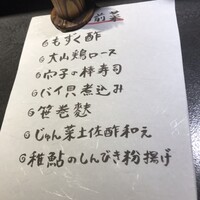 前菜
もずく酢
大山鶏ロース
穴子の棒寿司
バイ貝煮込み
笹巻麩
じゅん菜土佐酢和え
稚鮎のしんびき粉揚げ